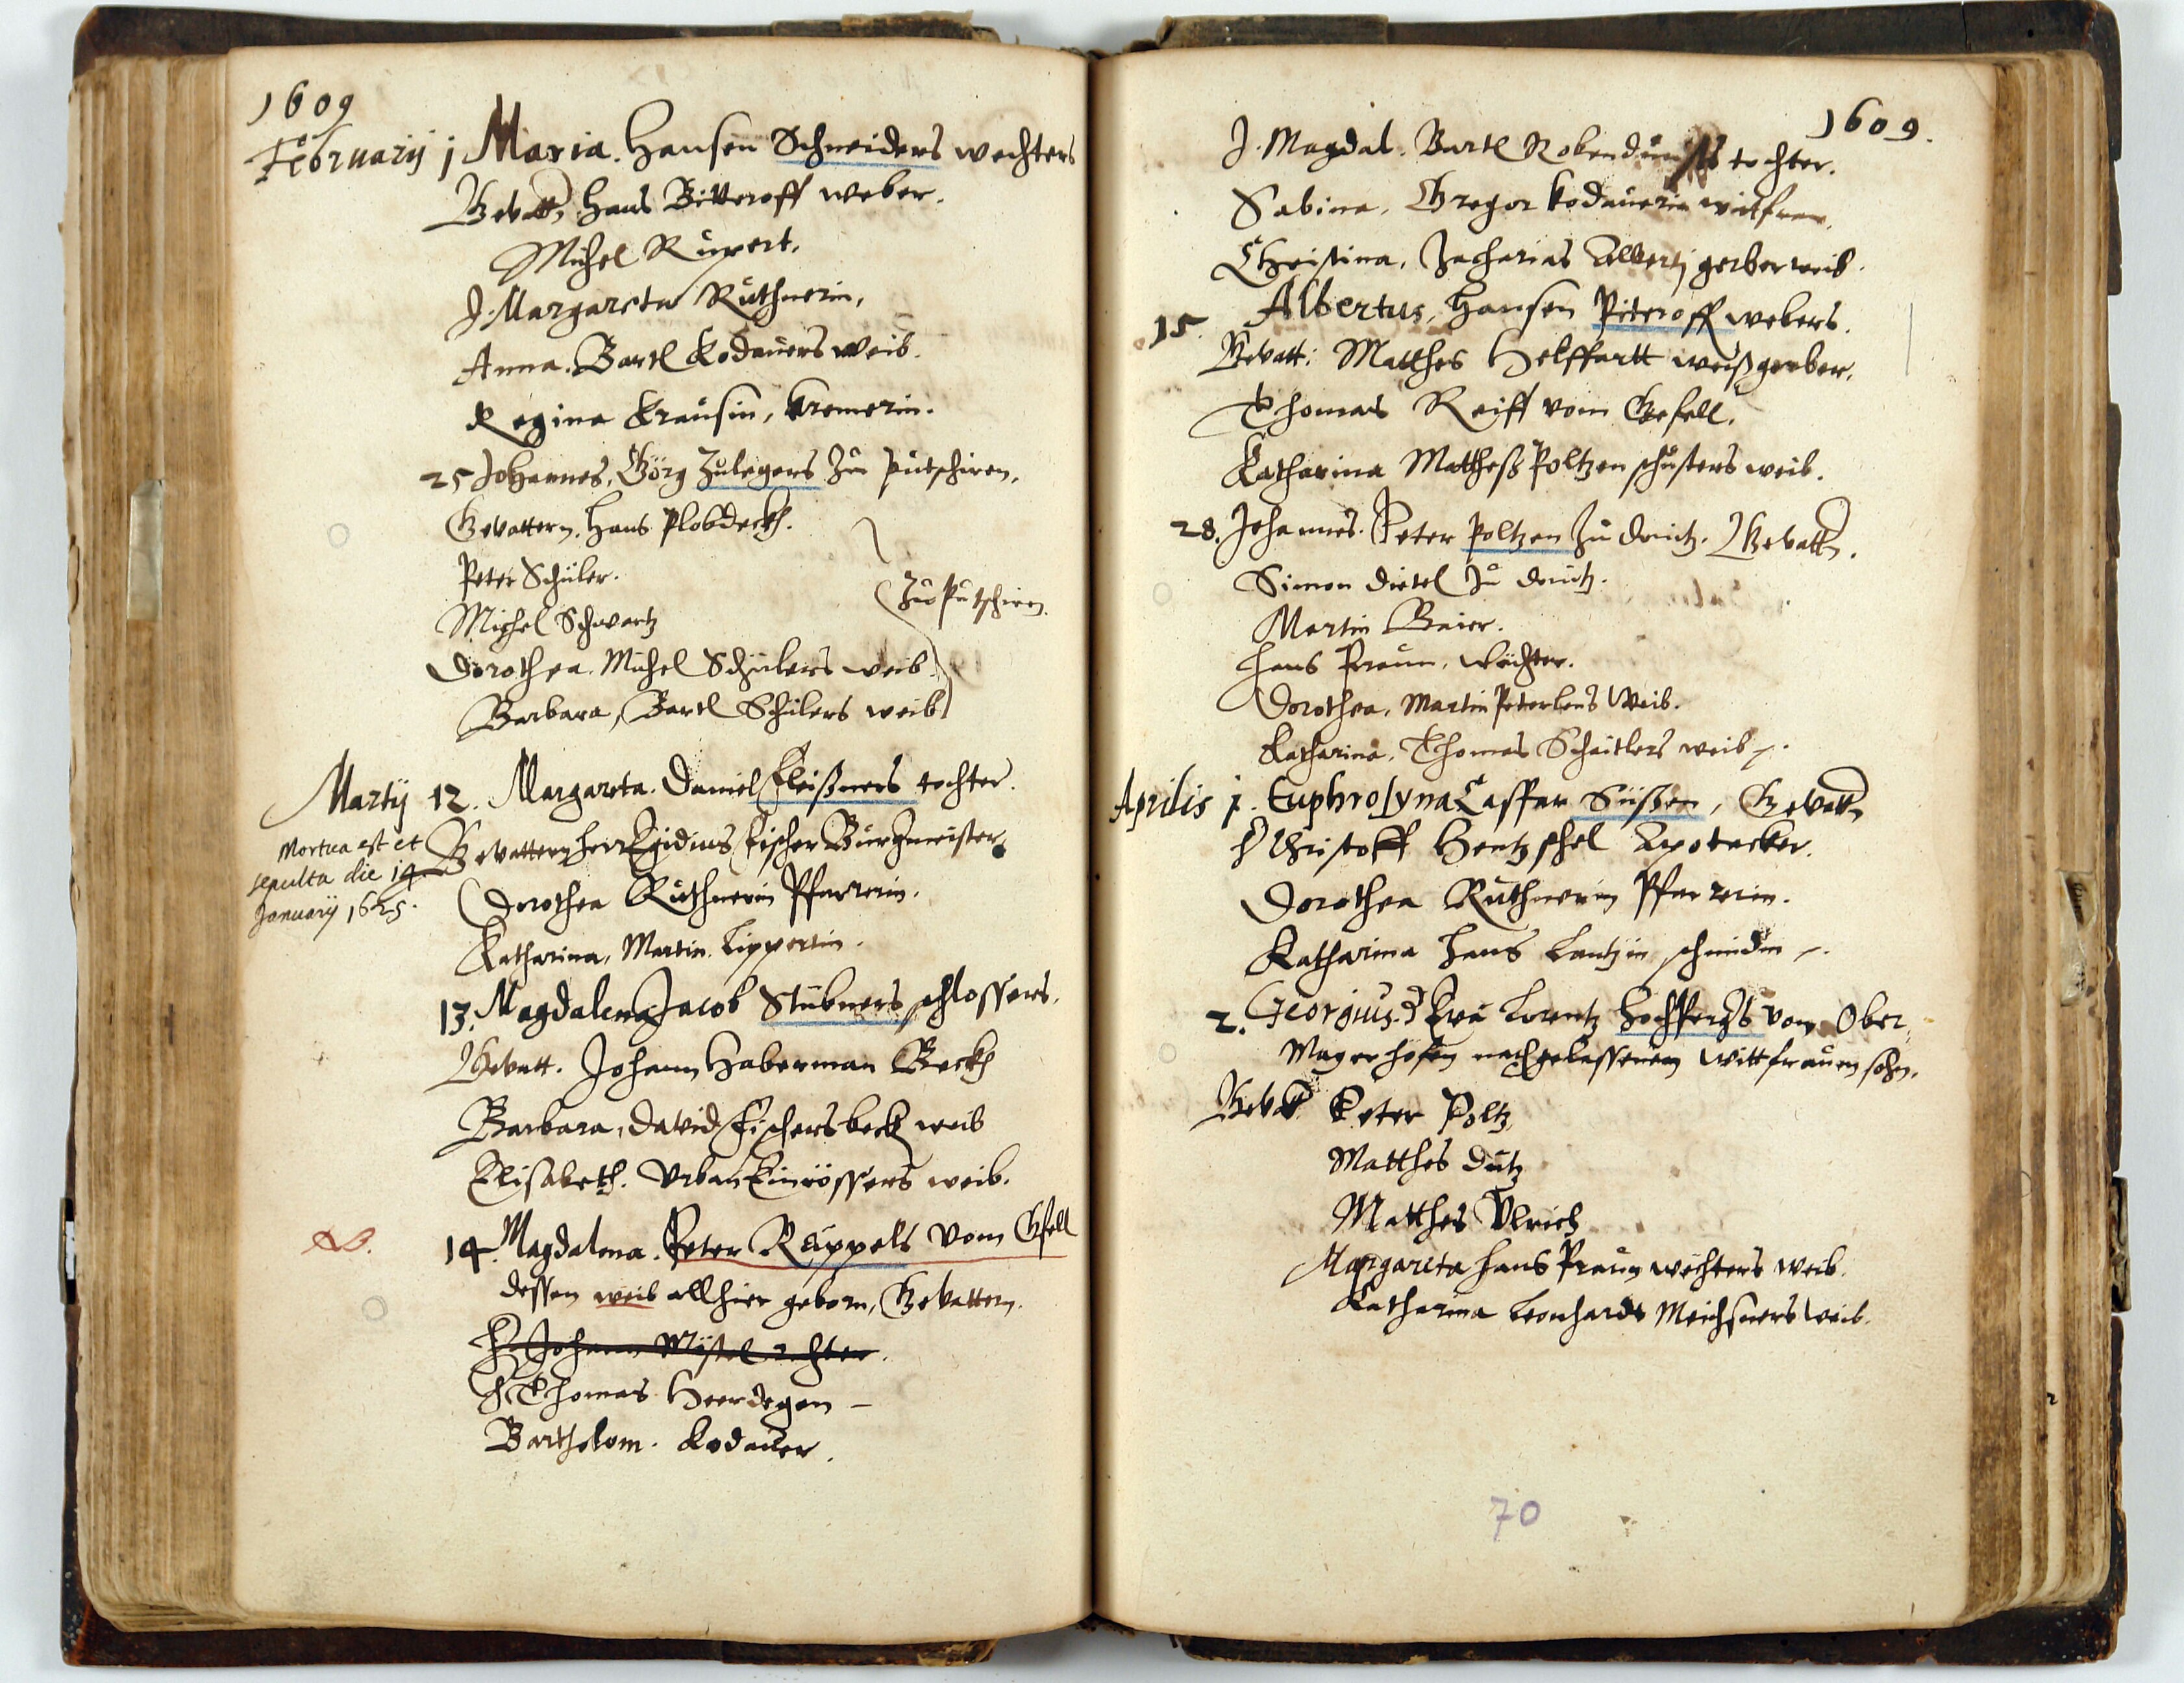 1609
Februarij j Maria. Hansen Schneiders wechters
Gevattn Hans Bitteroff weber.
Michel Rupert.
J. Margareta Ruthnerin,
Anna. Bartl Kodauers weib.
Regina Krausin, kremerin.
25 Johannes, Görg Zulegers zu Putschiren.
Gevattern. Hans Plobdeckh.
Peter Schüler.
Michel Schwartz
zu Putschiren.
Dorothea. Michel Schülers weib.
Barbara, Bartl Schülers weib
Martij 12. Margareta. Daniel Fleißners tochter.
Mortua est et
sepulta die 14
Januarij 1625.
Gevattern Herr Egidius Fischer Burgmeister
Dorothea Ruthnerin Pfarrerin.
Katharina, Martin Lippertin.
13. Magdalena Jacob Stübners schlossers.
Gevatt. Johann Haberman Beckh
Barbara, David Fischers beck weib
Elisabeth. Urban weib.
NB.
14. Magdalena. Peter Rüppels vom Gfell
dessen weib allhier geborn, Gevattern.
H. Johann
H. Thomas Heerdegen –
Bartholom. Kodauer.
1609.
J. Magdal. Bartl tochter.
Sabina, Gregor Kodauerin witfrau.
Christina, Zacharias Alberti gerber weib.
15. Albertus, Hansen Piteroff webers.
Gevatt: Matthes Helffartt weißgerber.
Thomas Reiff vom Gefell.
Katharina Mattheß Poltzen schusters weib.
28. Johannes. Peter Poltzen zu Gevattn.
Simon Dietel zu
Martin Baier.
Hans Praun, Wächter.
Dorothea, Martin Peterlens Weib.
Katharina, Thomas Scheitlers weib.
Aprilis j. Euphrosyna Casspar Süßen, Gevattn
H Christoff Hentzschel Apotecker.
Dorothea Ruthnerin Pfarrerin.
Katharina Hans Lantzin schmidin.
2. Georgius. Lorentz von Ober
Mayerhofen nachgelassenen wittfrauen sohn.
Gevatt. Peter Poltz
Matthes Dutz
Matthes Ulrich
Margareta Hans Praun wechters weib.
Katharina Leonhards Meichsners Weib.
70